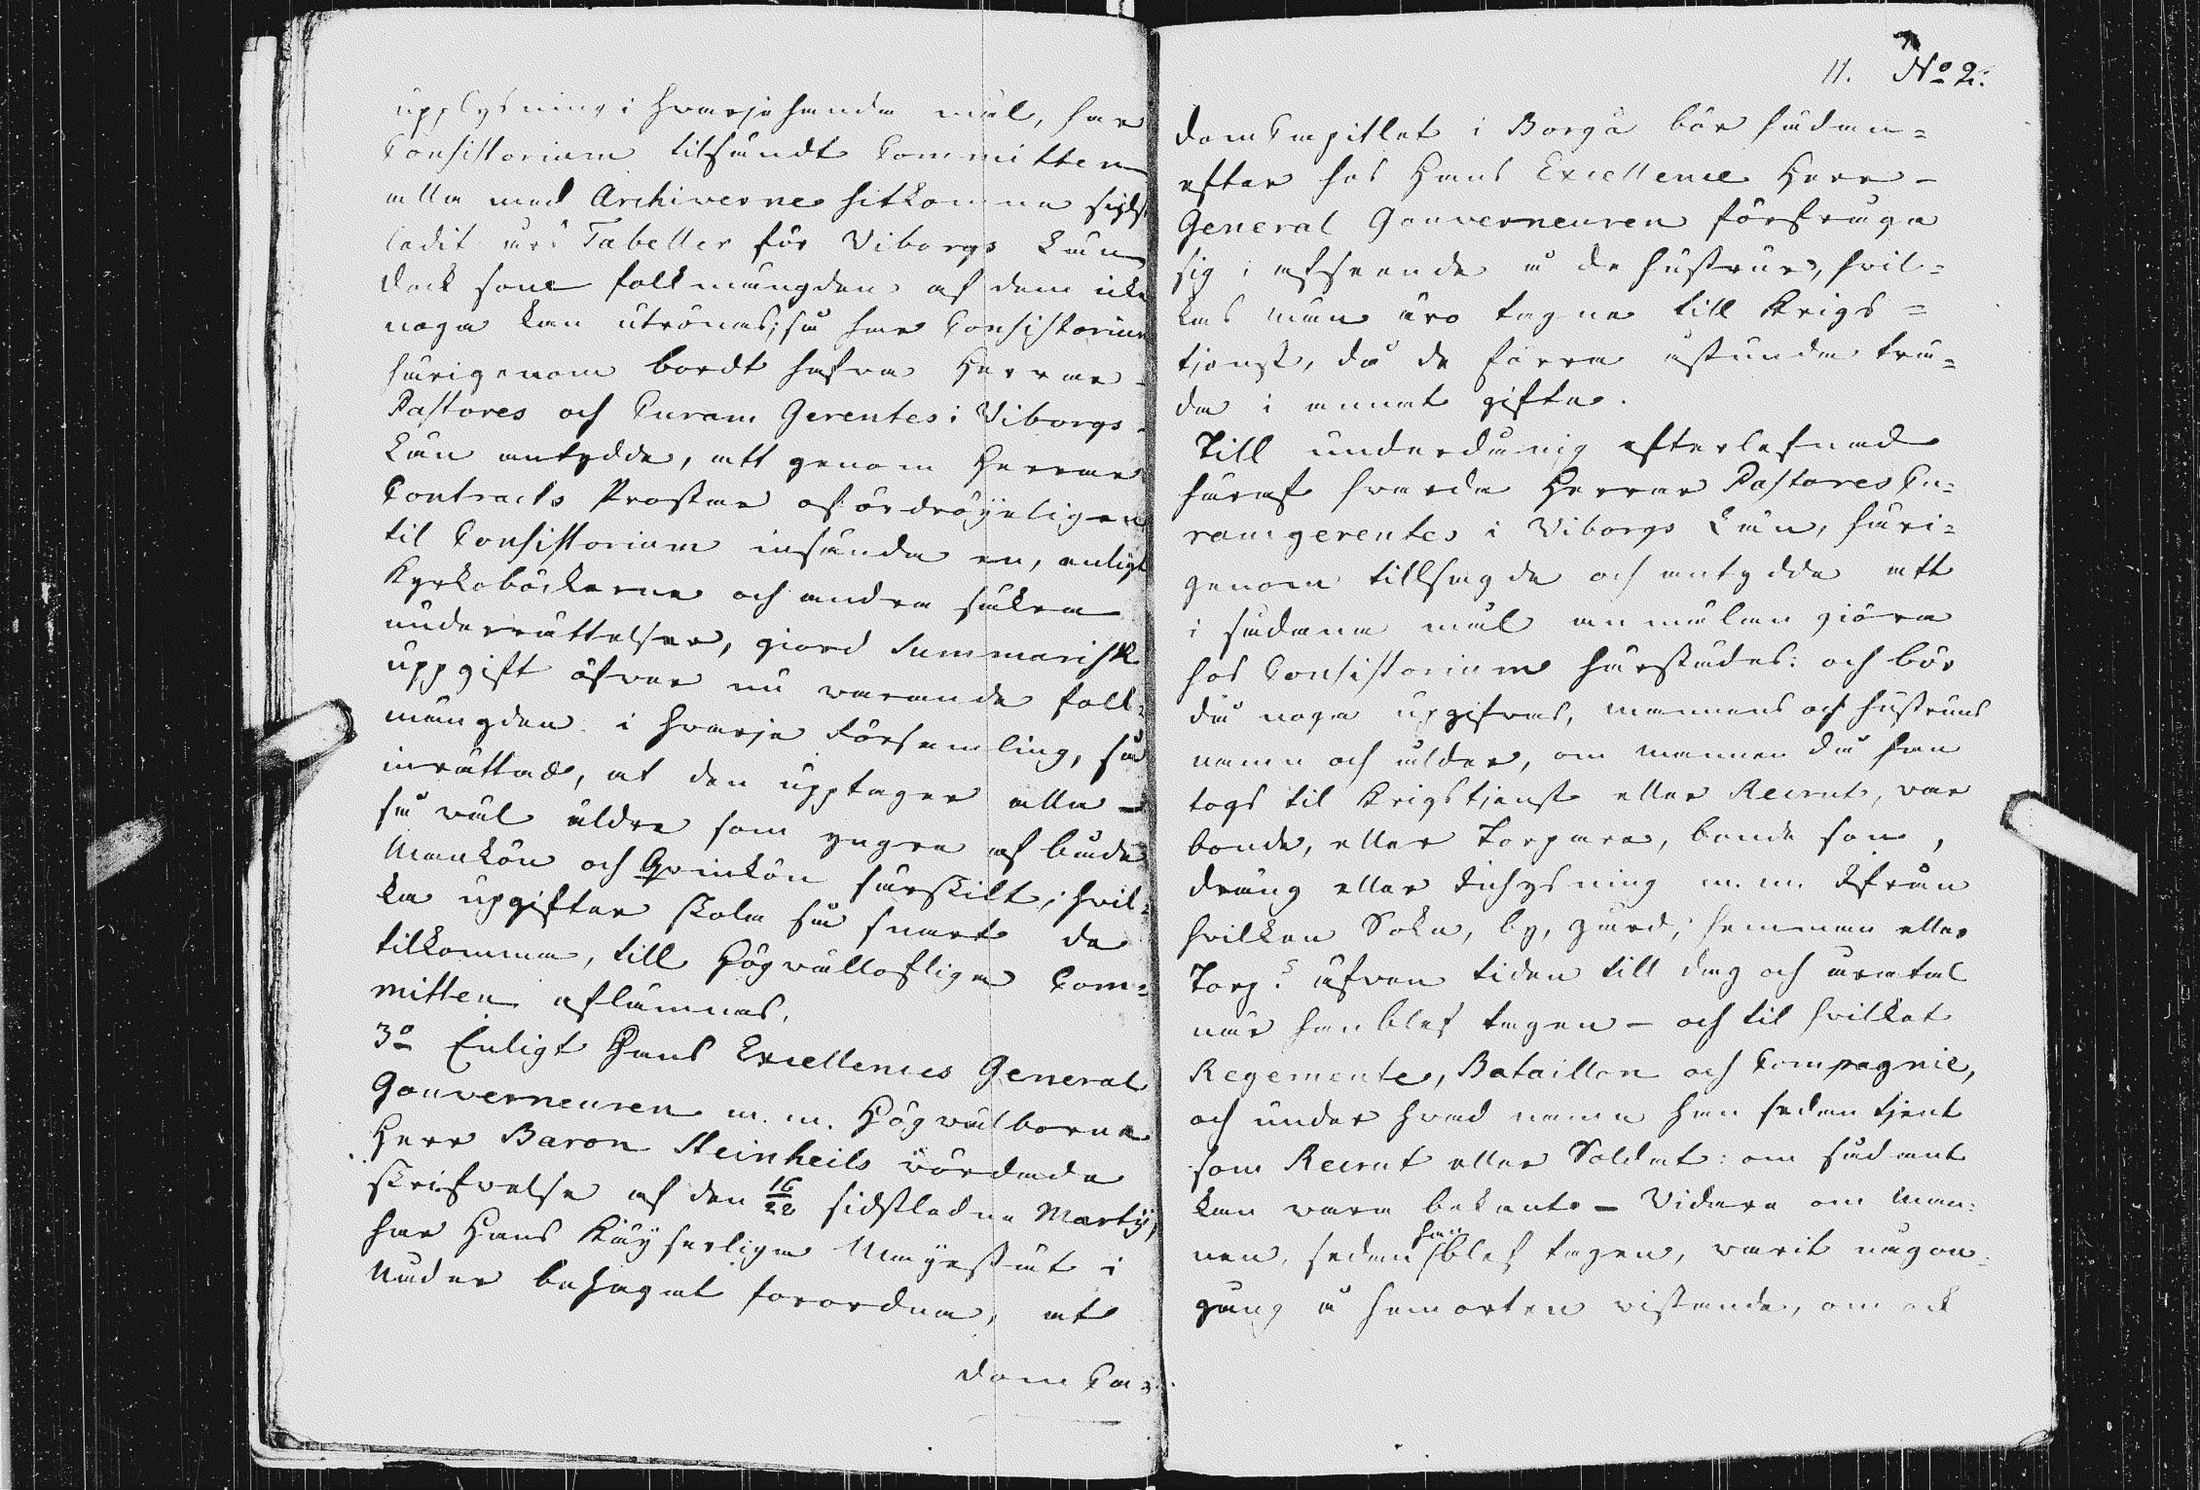 upplysning i hwarjehanda mål, har
Consistorium tilsändt Committen
alla med Archiverne hitkomne sist
ledit års Tabeller för Viborgs Län
dock som folkmängden af dem icke
noga kan utrönas; så har Consistorium
härigenom bordt hafva Herrar
Pastores och Curam Gerentes i Viborgs
Län antydde, att genom Herrar
Contracts Prostar ofördröÿeligen
til Consistorium insända en, enligt
Kyrkoböckerne och andra säkra
underrättelser, giord Summarisk
uppgift öfver nu warande folk-
mängden i hvarje Församling, så
inrättad, at den upptager alla
så wäl äldre som yngre af både
Mankön och Qvinkön särskilt, hvil-
ka upgifter skola så snart de
tilkomma, till Högwälloflige Com-
mitten aflämnas.
3o Enligt Hans Excellences General
Gouverneuren m. m. Högwälborne
Herr Baron Steinheils wördade
skrifvelse af den 16/28 sidstledne Martÿ,
har Hans Käÿserliga Maÿestät i
Nåder behagat förordna, at
Dom Ca-
11. No 2.
DomCapitlet i Borgå bör hädan-
efter hos Hans Excellence Herr
General Gouverneuren förfråga
sig i afseende å de hustrur, hvil-
kas män äro tagne till Krigs-
tjenst, då de förra åstunda trä-
da i annat gifte.
Till underdånig efterlefnad
häraf warda Herrar Pastores Cu-
ramgerentes i Viborgs Län, häri-
genom tillsagde och antydde att
i sådana mål anmälan giöra
hos Consistorium härstädes: och bör
då noga upgifvas, mannens och hustruns
namn och ålder, om mannen då han
togs til Krigstjenst eller Recrut, var
bonde, eller Torpare, bonde son,
dräng eller Inhysning m. m. Ifrån
hvilken Sokn, by, gård, hemman eller
Torp? äfven tiden till dag och åratal
när han blef tagen – och til hvilket
Regemente, Bataillon och Compagnie,
och under hvad namn han sedan tjent
som Recrut eller Soldat: om sådant
kan vara bekant – Vidare om Man-
nen, sedan han blef tagen, warit någon
gång å hemorten vistande, om ock